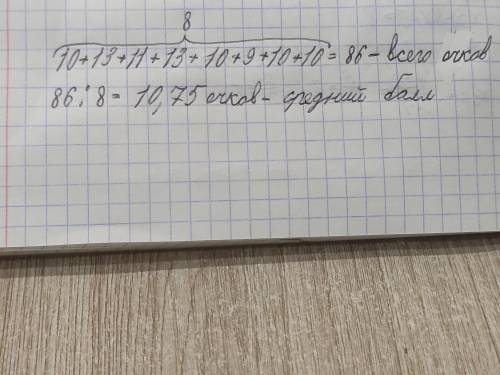 8
10+13+11+13+10+9+10+10=86-всего очков
86:8=10,75 очков-средний балл